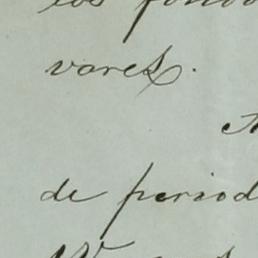 los fondo
vares.
de period